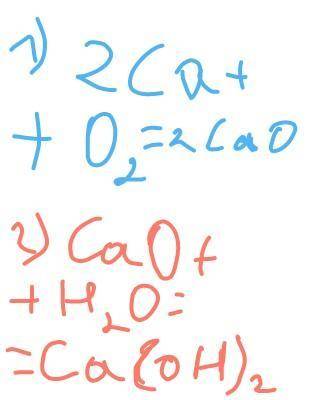 1) 2Ca +
+ O₂ = 2CaO
2) CaO +
+ H₂O =
= Ca(OH)₂